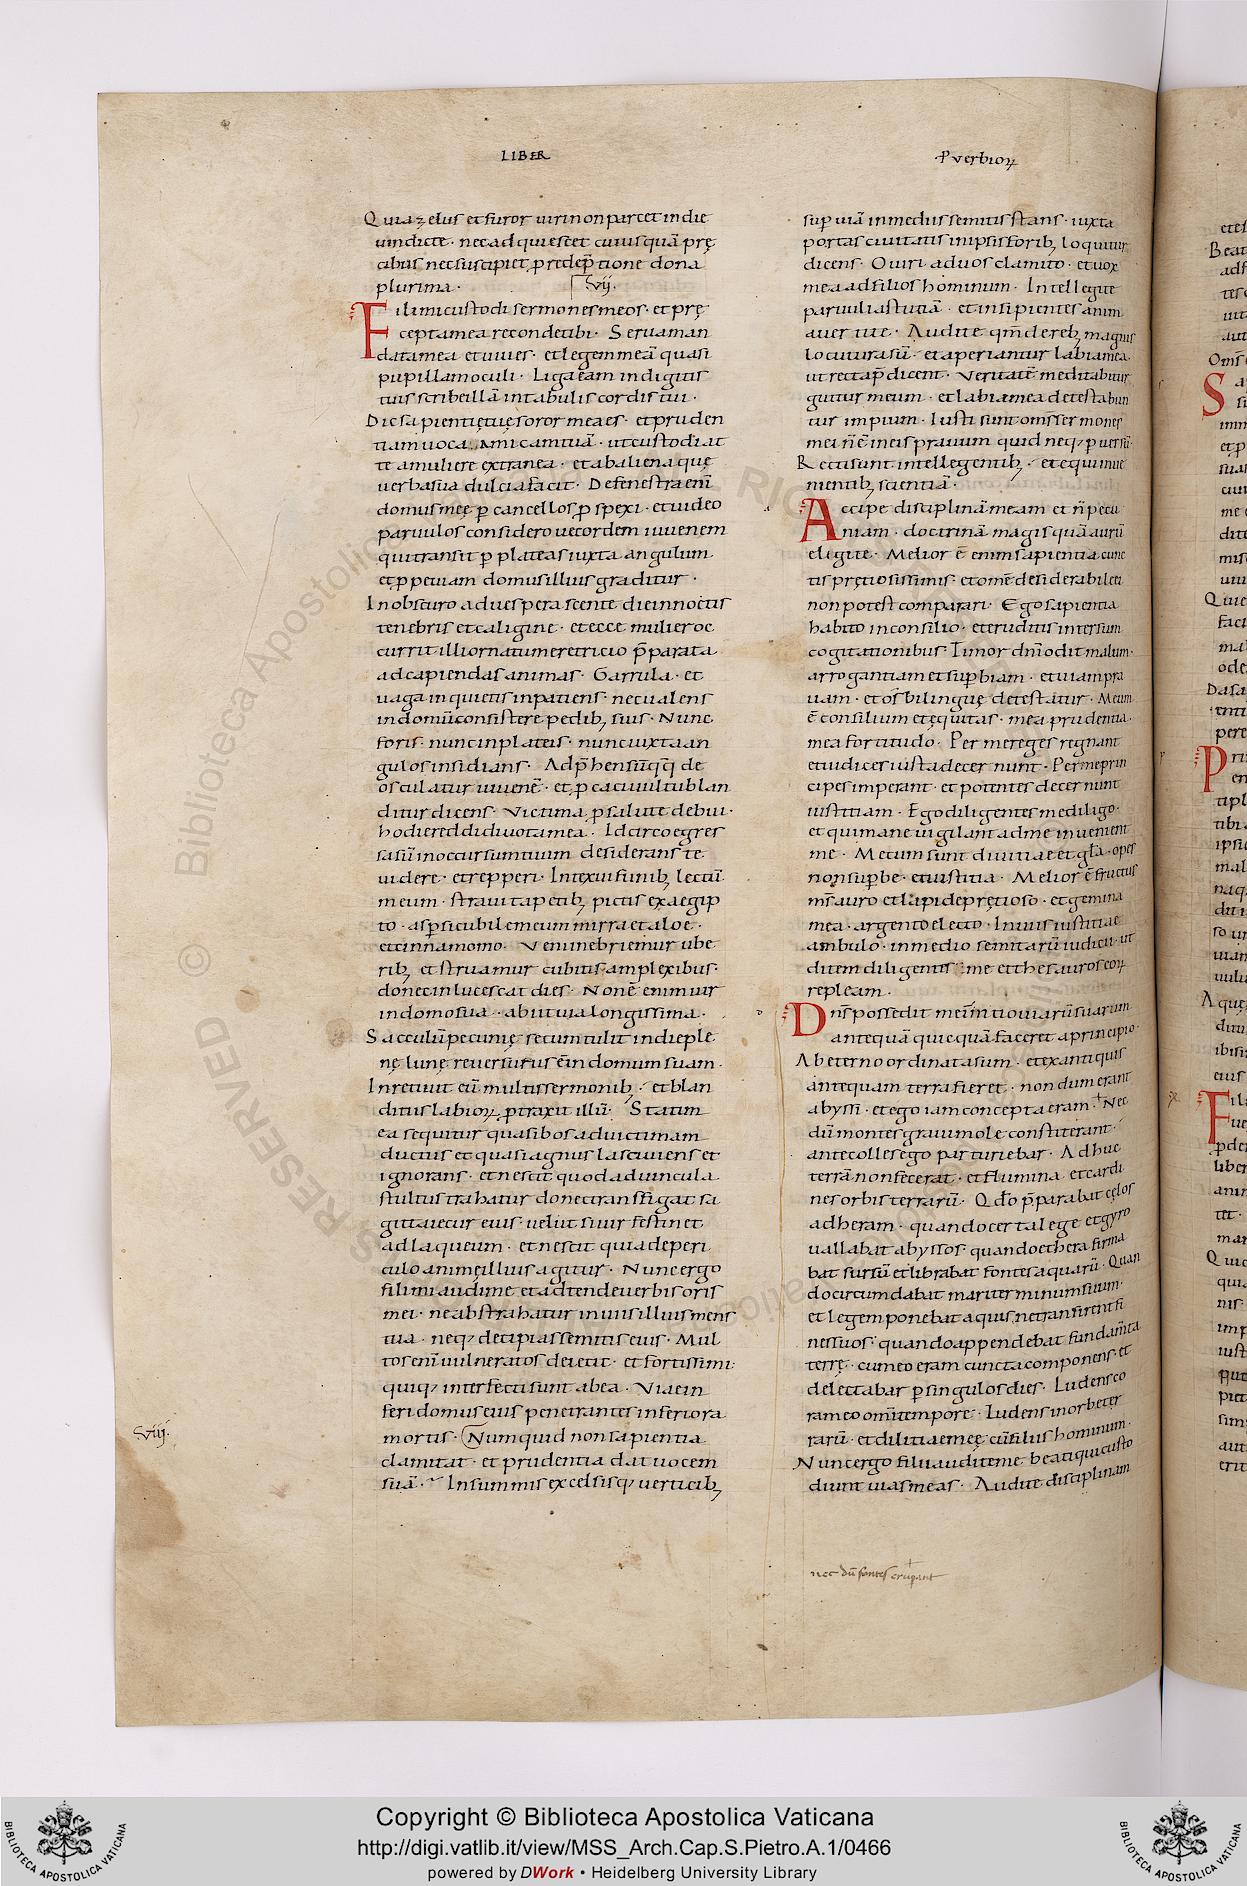 LIBER
Quia zelus et furor uiri non parcet in die
uindicte · nec adquiescet cuiusquā prę
cibus nec suscipiet p redēptione dona
plurima · vij.
Fili mi custodi sermones meos · et prę
cepta mea reconde tibi · Serua man
data mea et uiues · et legem meā quasi
pupillam oculi · Liga eam in digitis
tuis scribe illā in tabulis cordis tui ·
Dic sapientię tuę soror mea es · et pruden
tiam uoca amicam tuā · ut custodiat
te a muliere extranea · et ab aliena quę
uerba sua dulcia facit · De fenestra enī
domus meę p cancellos pspexi · et uideo
paruulos considero uecordem iuuenem
qui transit p plateas iuxta angulum
et pp e uiam domus illius graditur ·
In obscuro aduesperascente die in noctis
tenebris et caligine · et ecce mulier oc
currit illi ornatu meretricio p̄parata
ad capiendas animas · Garrula · et
uaga inquietis inpatiens · nec ualens
in domū consistere pedib; suis · Nunc
foris nunc in plateis · nunc iuxta an
gulos insidians · Adp̄hensūq;q; de
osculatur iuuenē · et pcaci uultu blan
ditur dicens · Victima p salute debui ·
hodie reddidi uota mea · Idcirco egres
sa sū in occursum tuum desiderans te
uidere · et repperi · Intexui funib; lectū
meum · straui tapetib; pictis ex aegip
to · aspsi cubile meum mirra et aloe ·
et cinnamomo · Veni inebriemur ube
rib; et fruamur cubitis amplexibus ·
donec inlucescat dies · Non ē enim uir
in domo sua · abiit uia longissima ·
Sacculū pecunię secum tulit in die ple
nę lunę reuersurus ē in domum suam ·
Inretiuit eū multis sermonib; · et blan
ditiis labioꝝ ptraxit illū · Statim
ea sequitur quasi bos ad uictimam
ductus et quasi agnus lasciuiens et
ignorans · et nescit quod ad uincula
stultus trahatur donec transfigat sa
gitta iecur eius · uelut si uir festinet
ad laqueum · et nescit quia de peri
culo animę illius agitur · Nunc ergo
fili mi audi me et adtende uerbis oris
mei · ne abstrahatur in uiis illius mens
tua · neq; decipias semitis eius · Mul
tos enī uulneratos deiecit · et fortissimi
quiq; interfecti sunt ab ea · Viae in
feri domus eius penetrantes inferiora
viij.
mortis · Numquid non sapientia
clamitat · et prudentia dat uocem
suā · In summis excelsisq; uerticib;
Puerbioꝝ
sup uiā in mediis semitis stans · iuxta
portas ciuitatis in ipsis forib; loquitur
dicens · O uiri ad uos clamito · et uox
mea ad filios hominum · Intellegite
paruuli astutiā · et insipientes anim
auertite · Audite qm̄ de reb; magnis
locutura sū · et aperiantur labia mea
ut recta p̄dicent · Veritatē meditabitur
guttur meum · et labia mea detestabun
tur impium · Iusti sunt om̄s sermones
mei n̄ ē in eis prauum quid neq; p uersū
Recti sunt intellegentib; · et equi inue
nientib; scientiā ·
Accipe disciplinā meam et n̄ pecu
niam · doctrinā magis quā aurū
eligite · Melior ē enim sapientia cunc
tis prętiosissimis · et omē desiderabile ei
non potest comparari · Ego sapientia
habito in consilio · et eruditis intersum
cogitationibus · Timor dn̄i odit malum ·
arrogantiam et supbiam · et uiam pra
uam · et os bilinguę detestātur · Meum
ē consilium et equitas · mea prudentia
mea fortitudo · Per me reges regnant
et iudices iusta decernunt · Per me prin
cipes imperant · et potentes decernunt
iustitiam · Ego diligentes me diligo ·
et qui mane uigilant ad me inuenient
me · Mecum sunt diuitiae et gl̄a · opes
non supbe · et iustitia · Melior ē fructus
ms̄ auro et lapide prętioso · et gemina
mea · argento electo · In uiis iustitiae
ambulo · in medio semitarū iudicii · ut
ditem diligentes me et thesauros eoꝝ
repleam ·
Dn̄s possedit me in initio uiarū suarum
antequā quicquā faceret a principio ·
Ab eterno ordinata sum · et ex antiquis
antequam terra fieret · nondum erant
abyssi · et ego iam concepta eram · Nec
dū montes graui mole constiterant ·
ante colles ego parturiebar · Adhuc
terrā non fecerat · et flumina et cardi
nes orbis terrarū · Qdo p̄parabat cęlos
adheram · quando certa lege et gyro
uallabat abyssos · quando ethera firma
bat sursū et librabat fontes aquarū · Quan
do circumdabat mari terminum suum ·
et legem ponebat aquis ne transirent fi
nes suos · quando appendebat fundamta
terrę · cum eo eram cuncta componens · et
delectabar p singulos dies · Ludens co
ram eo omī tempore · Ludens in orbe ter
rarū · et dilitiae meę cū filiis hominum ·
Nunc ergo filii audite me beati qui custo
diunt uias meas · Audite disciplinam
nec dū fontes erupant
Copyright © Biblioteca Apostolica Vaticana
http://digi.vatlib.it/view/MSS_Arch.Cap.S.Pietro.A.1/0466
powered by DWork • Heidelberg University Library
BIBLIOTECA APOSTOLICA VATICANA
BIBLIOTECA APOSTOLICA VATICANA